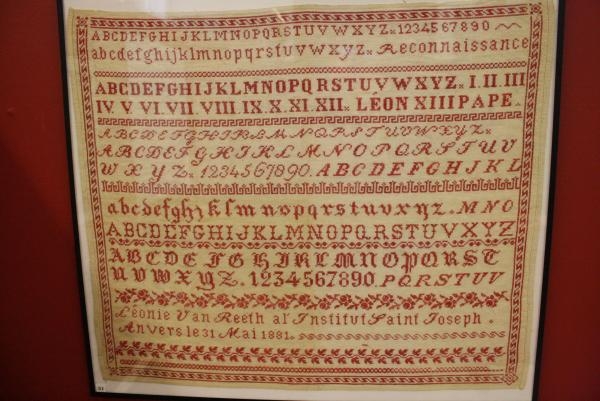 ABCDEFGHIJKLMNOPQRSTUVWXYZ. 1234567890
abcdefghijklmnopqrstuvwxyz. Reconnaissance
ABCDEFGHIJKLMNOPQRSTUVWXYZ. I. II. III
IV. V. VI. VII. VIII. IX. X. XI. XII. LÉON XIII PAPE.
ABCDEFGHIJKLMNOPQRSTUVWXYZ.
ABCDEFGHIJKLMNOPQRSTUV
WXYZ. 1234567890. ABCDEFGHIJKL
abcdefghijklmnopqrstuvwxyz. MNO
ABCDEFGHIJKLMNOPQRSTUVXYZ
ABCDEFGHIKLMNOPQRST
UVWXYZ. 1234567890. PQRSTUV
Léonie Van Reeth al'Institut Saint Joseph.
Anvers le 31 Mai 1881.